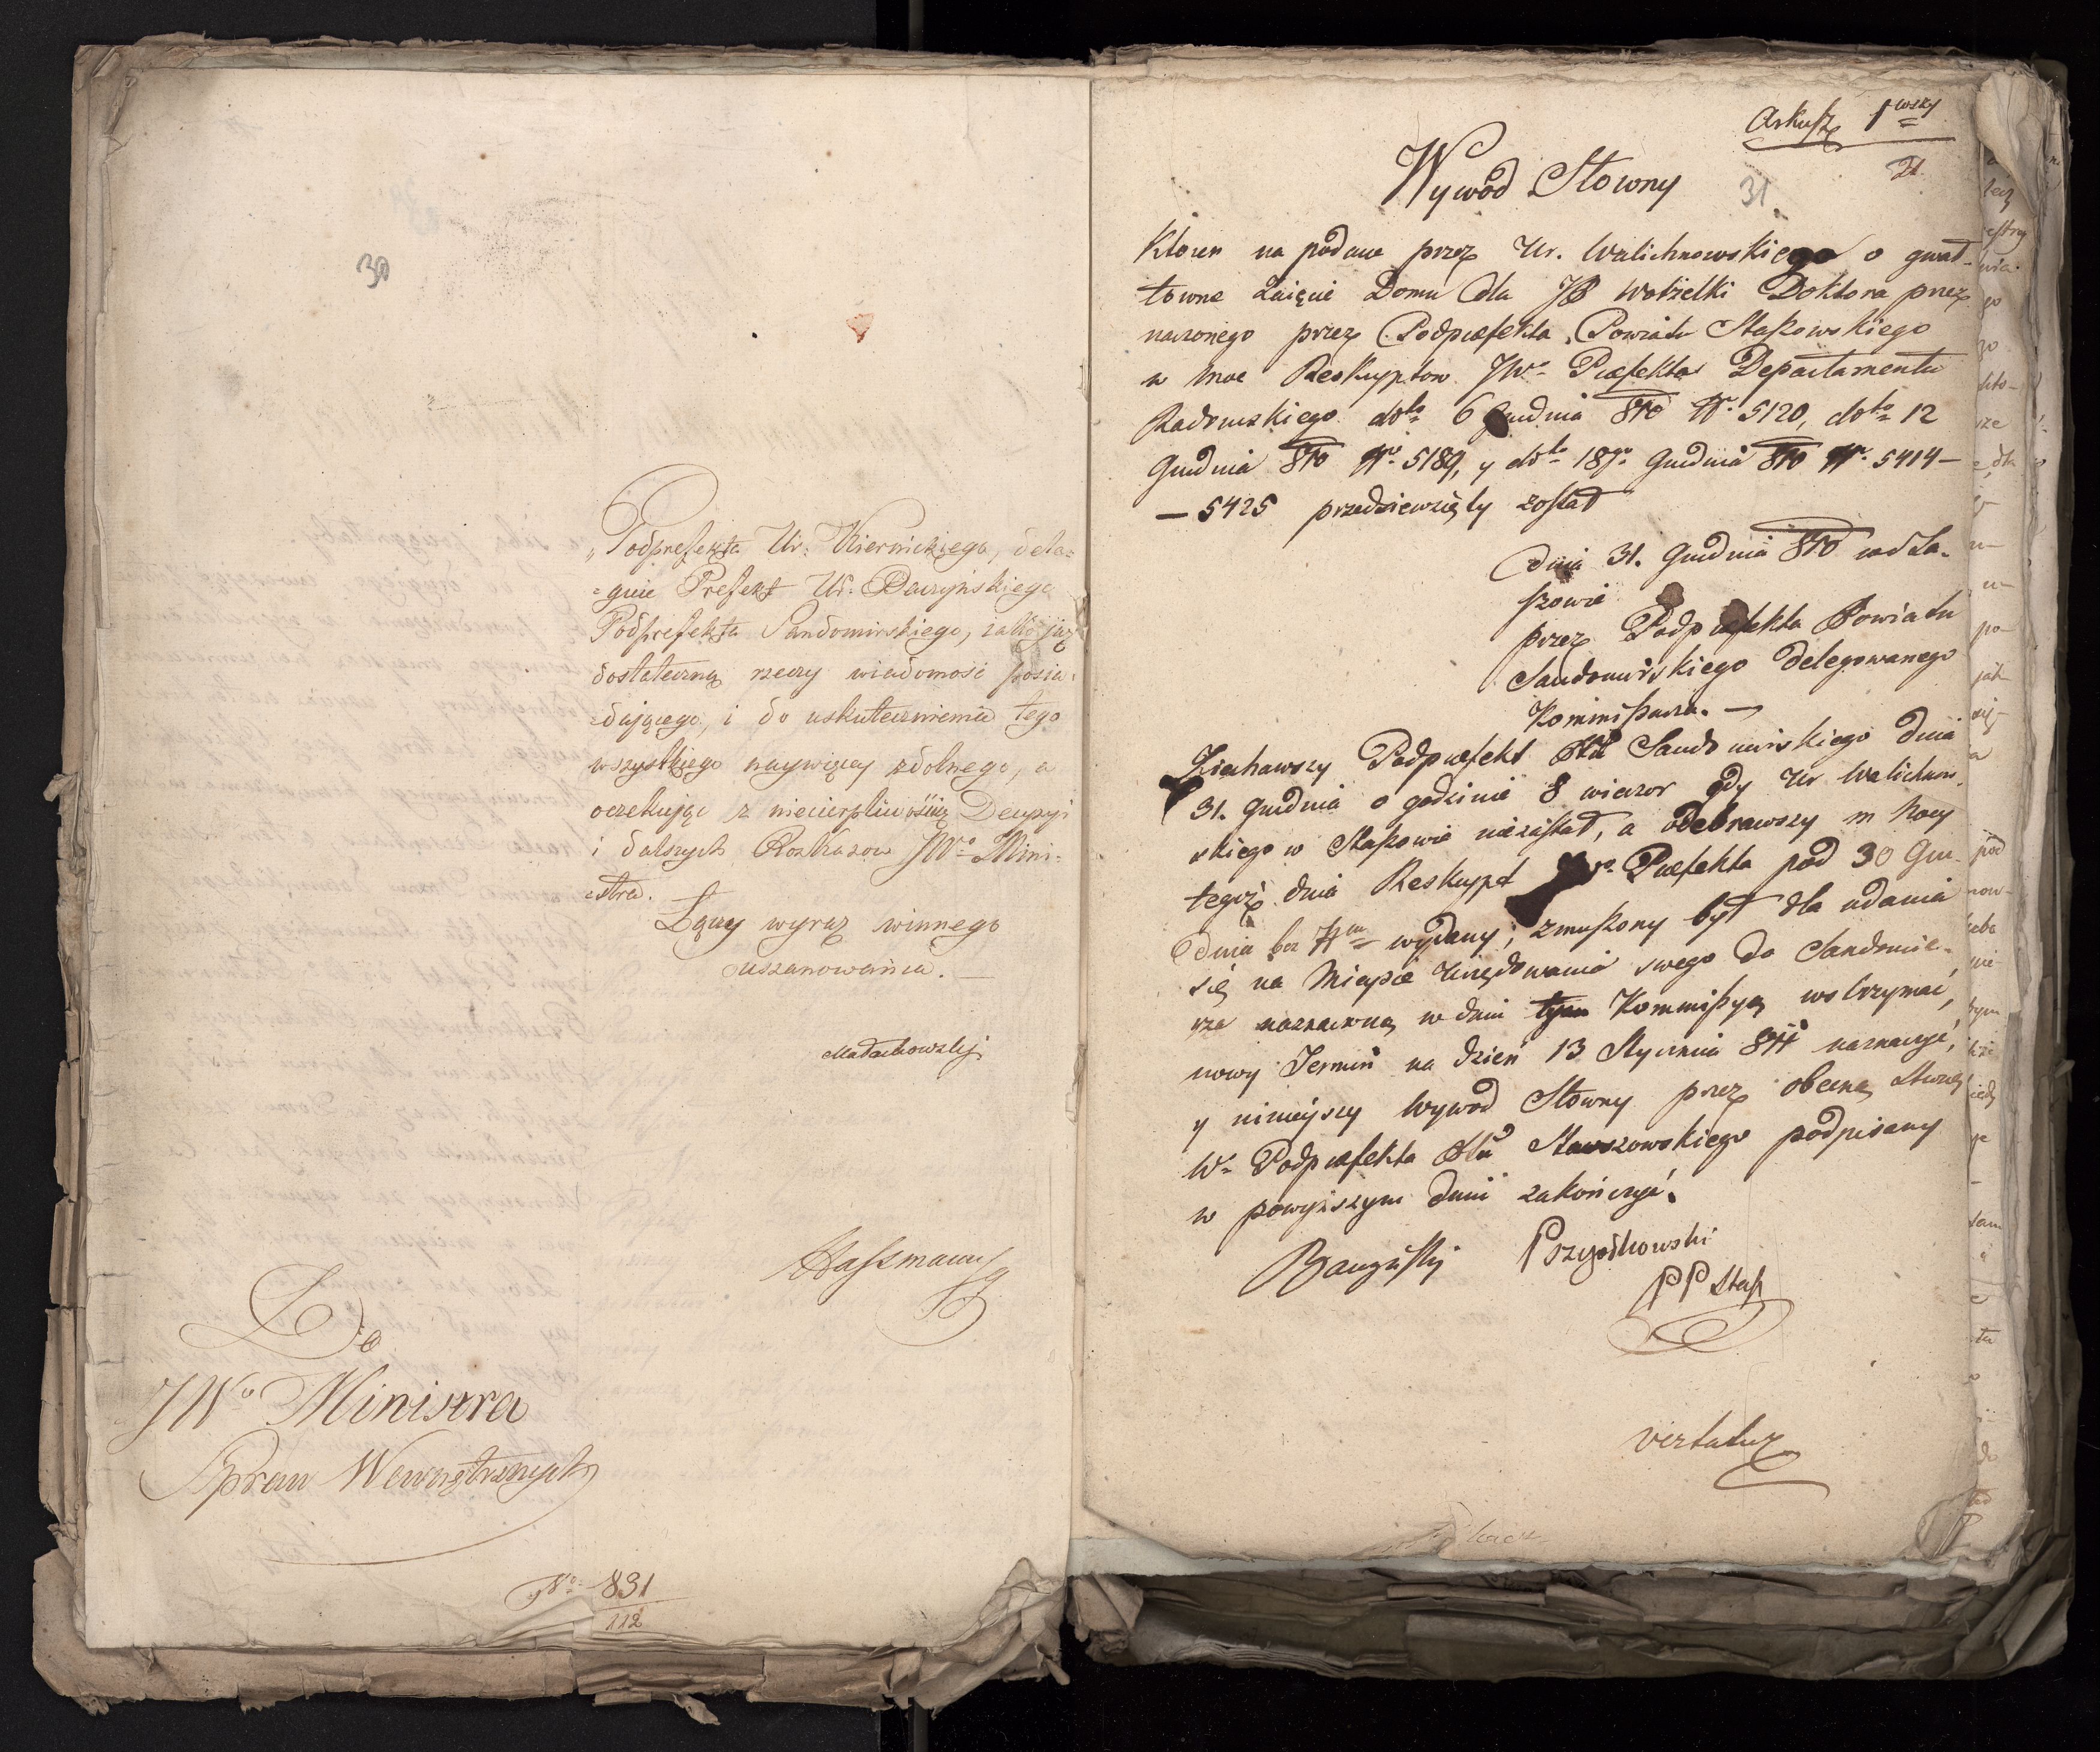 30
Podprefekta Ur: Kiernickiego, dele=
=guie Prefekt Ur. Daczyńskiego
Podprefekta Sandomirskiego, iako już
dostateczną rzeczy wiadomość posia=
=daiącego, i do uskutecznienia tego
wszystkiego naywięcey zdolnego, a
oczekując z niecierpliwością Decyzyi
i dalszych Rozkazow JWo Mini=
=stra.
Łączy wyraz winnego
uszanowania. —
Małachowskj
Hassmann
Do
JWo Ministra
Spraw Wewnętrznych
No. 831
112
Arkusz 1wszy
21
31.
Wywod Słowny
Ktoren na podane przez Ur. Walichnowskiego o gwał=
towne Zaięcie Domu dla JP Wotzelki Doktora prze
naczonego przez Podprefekta Powiatu Staszowskiego
w moc Reskryptow JWo Prefekta Departamentu
Radomskiego ddto 6 Grudnia 810 Nr. 5120, ddto 12
Grudnia 810 Nro 5189, y ddto 18go Grudnia 810 Nr. 5414—
— 5425 przedsiewzięty został
Dnia 31. Grudnia 810 w Sta-
szowie
przez Podprefekta Powiatu
Sandomirskiego Delegowanego
Kommissarza. —
Ziechawszy Podprefekt Ptu Sandomirskiego Dnia
31. Grudnia o godzinie 8 wieczor gdy Ur Walichnow
skiego w Staszowie niezastał, a odebrawszy w Nocy
tegoż dnia Reskrypt Prefekta pod 30 Gru-
dnia bez Nru wydany, zmuszony był dla udania
się na Mieysce Urzędowania swego do Sandomie-
rza naznaczoną w dniu tym Kommissyą wstrzymać,
nowy Termin na dzień 13 Stycznia 811 naznaczyć,
y ninieyszy Wywod Słowny przez obecną Stronę
Wo Podprefekta Ptu Staszowskiego podpisany
w powyższym dniu zakończyć.
Przypkowski
PP Stasz
vertatur